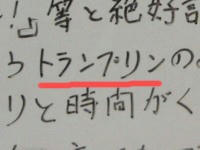 !」等と絶好
うトランプリンの
りと時間がく